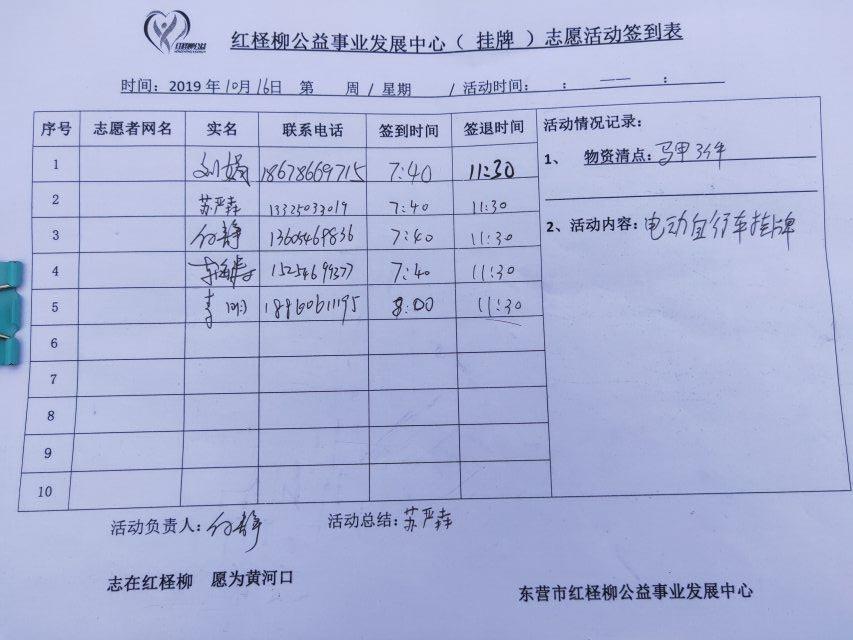 红柽柳公益事业发展中心（ 挂牌 ）志愿活动签到表
时间：2019 年10月16日 第 周 / 星期 / 活动时间： ： —— ：
序号 志愿者网名 实名 联系电话 签到时间 签退时间 活动情况记录：
1 18678669715 7:40 11:30
1、 物资清点：马甲3件
2 苏严森 13325033019 7:40 11:30
3 何静 13605469836 7:40 11:30
2、活动内容：电动自行车挂牌
4 15254699377 7:40 11:30
5 18860611195 8:00 11:30
6
7
8
9
10
活动负责人：何静 活动总结：苏严森
志在红柽柳 愿为黄河口
东营市红柽柳公益事业发展中心